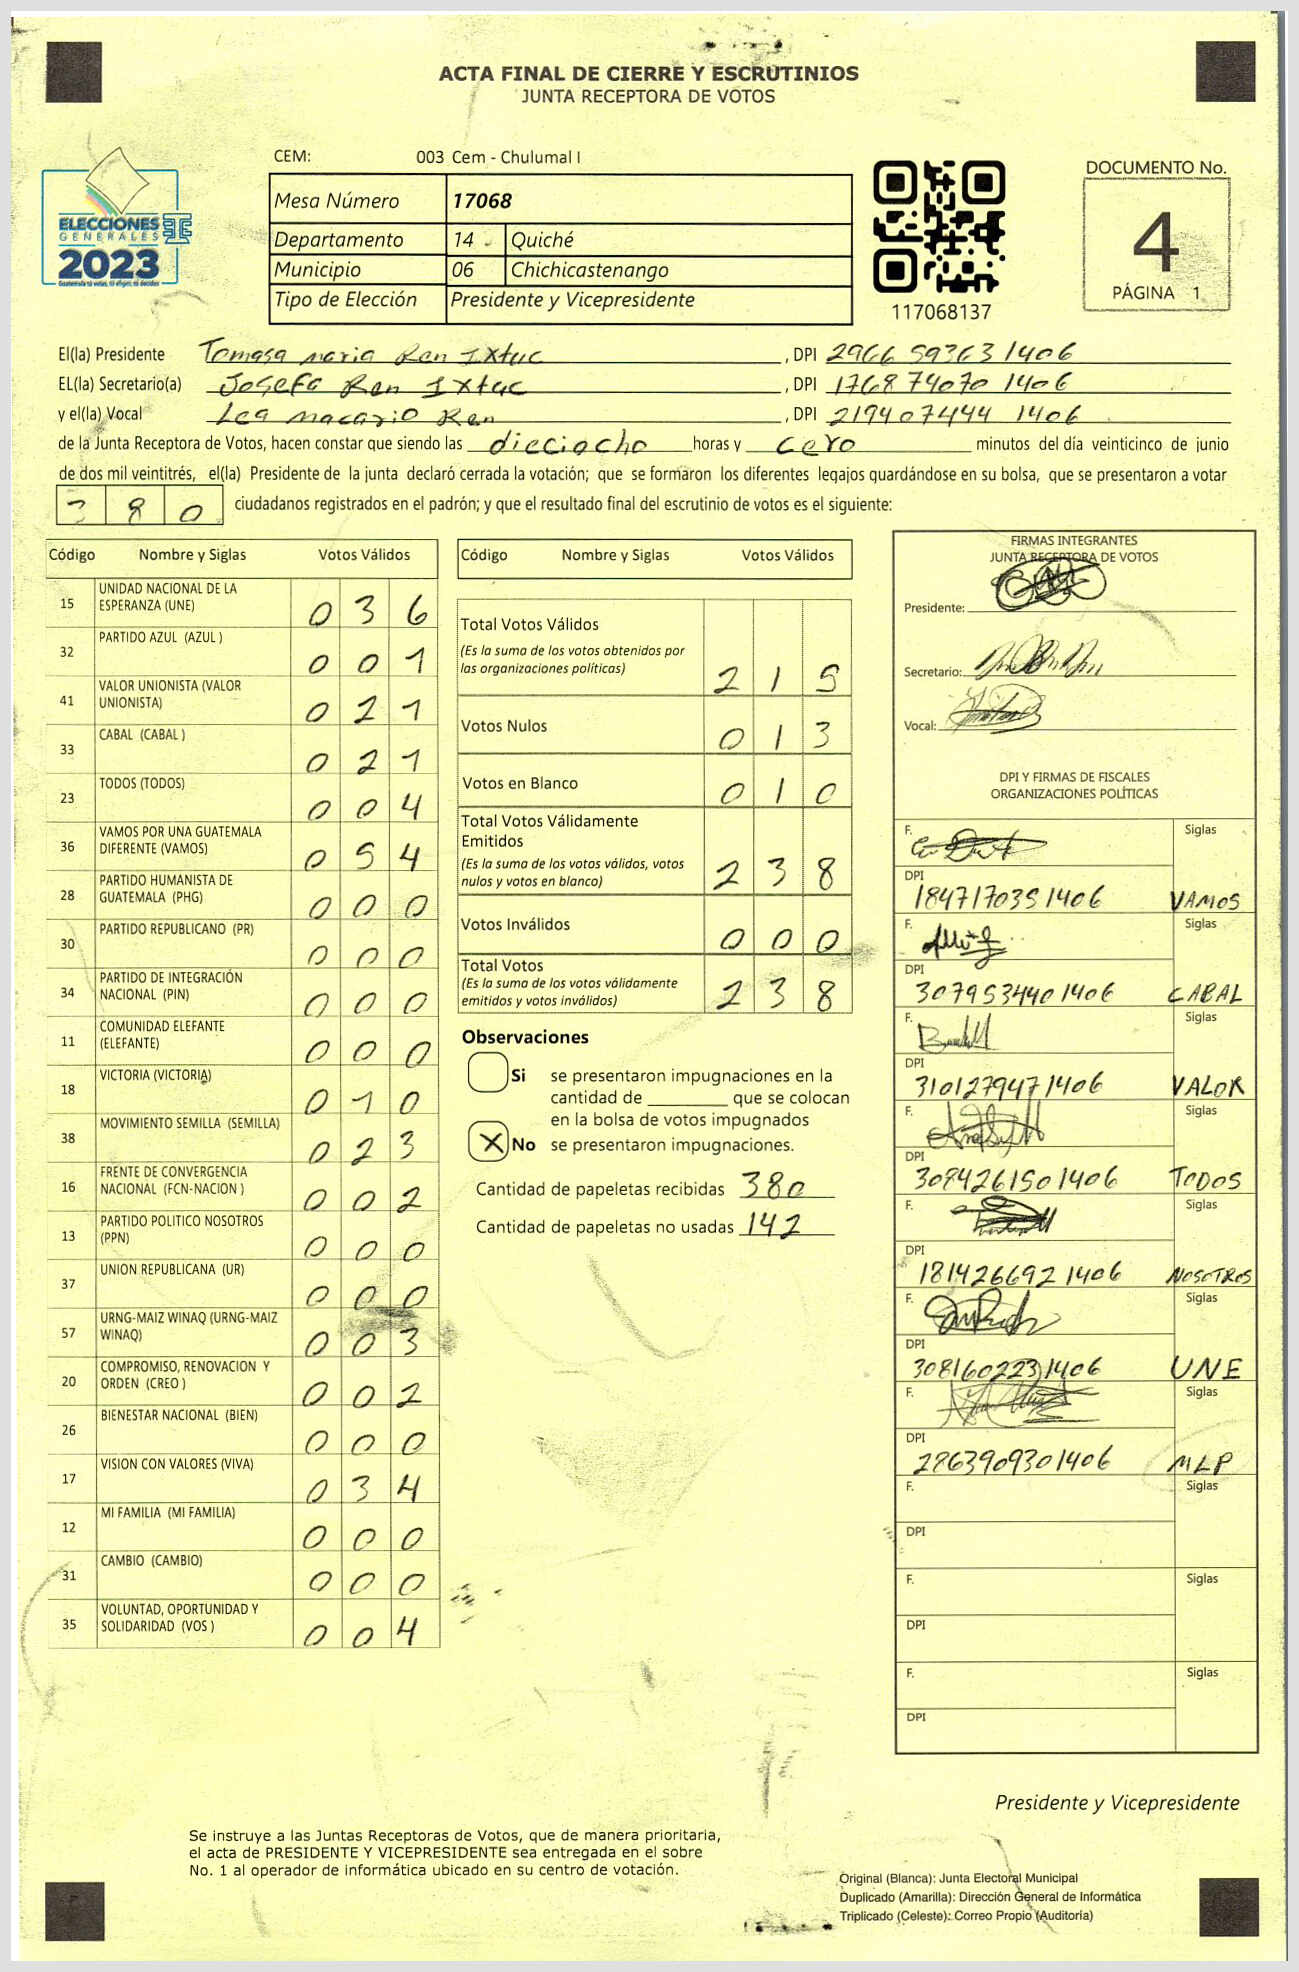 ACTA FINAL DE CIERRE Y ESCRUTINIOS
JUNTA RECEPTORA DE VOTOS
ELECCIONES
GENERALES
2023
Guatemala tú votas, tú eliges, tú decides
CEM: 003 Cem - Chulumal I
Mesa Número 17068
Departamento 14 Quiché
Municipio 06 Chichicastenango
Tipo de Elección Presidente y Vicepresidente
117068137
DOCUMENTO No.
4
PÁGINA 1
El(la) Presidente Tomasa maria Ren Ixtuc, DPI 2966 59363 1406
EL(la) Secretario(a) Josefa Ren Ixtuc, DPI 1768 74070 1406
y el(la) Vocal Lea macario Ren, DPI 2194 07444 1406
de la Junta Receptora de Votos, hacen constar que siendo las dieciocho horas y cero minutos del día veinticinco de junio
de dos mil veintitrés, el(la) Presidente de la junta declaró cerrada la votación; que se formaron los diferentes legajos quardándose en su bolsa, que se presentaron a votar
3 8 0 ciudadanos registrados en el padrón; y que el resultado final del escrutinio de votos es el siguiente:
Código Nombre y Siglas Votos Válidos
15 UNIDAD NACIONAL DE LA ESPERANZA (UNE) 0 3 6
32 PARTIDO AZUL (AZUL ) 0 0 1
41 VALOR UNIONISTA (VALOR UNIONISTA) 0 2 1
33 CABAL (CABAL ) 0 2 1
23 TODOS (TODOS) 0 0 4
36 VAMOS POR UNA GUATEMALA DIFERENTE (VAMOS) 0 5 4
28 PARTIDO HUMANISTA DE GUATEMALA (PHG) 0 0 0
30 PARTIDO REPUBLICANO (PR) 0 0 0
34 PARTIDO DE INTEGRACIÓN NACIONAL (PIN) 0 0 0
11 COMUNIDAD ELEFANTE (ELEFANTE) 0 0 0
18 VICTORIA (VICTORIA) 0 1 0
38 MOVIMIENTO SEMILLA (SEMILLA) 0 2 3
16 FRENTE DE CONVERGENCIA NACIONAL (FCN-NACION ) 0 0 2
13 PARTIDO POLITICO NOSOTROS (PPN) 0 0 0
37 UNION REPUBLICANA (UR) 0 0 0
57 URNG-MAIZ WINAQ (URNG-MAIZ WINAQ) 0 0 3
20 COMPROMISO, RENOVACION Y ORDEN (CREO ) 0 0 2
26 BIENESTAR NACIONAL (BIEN) 0 0 0
17 VISION CON VALORES (VIVA) 0 3 4
12 MI FAMILIA (MI FAMILIA) 0 0 0
31 CAMBIO (CAMBIO) 0 0 0
35 VOLUNTAD, OPORTUNIDAD Y SOLIDARIDAD (VOS ) 0 0 4
Código Nombre y Siglas Votos Válidos
Total Votos Válidos
(Es la suma de los votos obtenidos por
las organizaciones políticas) 2 1 5
Votos Nulos 0 1 3
Votos en Blanco 0 1 0
Total Votos Válidamente
Emitidos
(Es la suma de los votos válidos, votos
nulos y votos en blanco) 2 3 8
Votos Inválidos 0 0 0
Total Votos
(Es la suma de los votos válidamente
emitidos y votos inválidos) 2 3 8
Observaciones
Si se presentaron impugnaciones en la
cantidad de ________ que se colocan
en la bolsa de votos impugnados
X No se presentaron impugnaciones.
Cantidad de papeletas recibidas 380
Cantidad de papeletas no usadas 142
FIRMAS INTEGRANTES
JUNTA RECEPTORA DE VOTOS
Presidente:
Secretario:
Vocal:
DPI Y FIRMAS DE FISCALES
ORGANIZACIONES POLÍTICAS
F. Siglas
DPI
184717035 1406 VAMOS
F. Siglas
DPI
307953440 1406 CABAL
F. Siglas
DPI
310127947 1406 VALOR
F. Siglas
DPI
308426150 1406 TODOS
F. Siglas
DPI
181426692 1406 NOSOTROS
F. Siglas
DPI
308160223 1406 UNE
F. Siglas
DPI
286390930 1406 MLP
F. Siglas
DPI
F. Siglas
DPI
F. Siglas
DPI
Presidente y Vicepresidente
Se instruye a las Juntas Receptoras de Votos, que de manera prioritaria,
el acta de PRESIDENTE Y VICEPRESIDENTE sea entregada en el sobre
No. 1 al operador de informática ubicado en su centro de votación.
Original (Blanca): Junta Electoral Municipal
Duplicado (Amarilla): Dirección General de Informática
Triplicado (Celeste): Correo Propio (Auditoría)